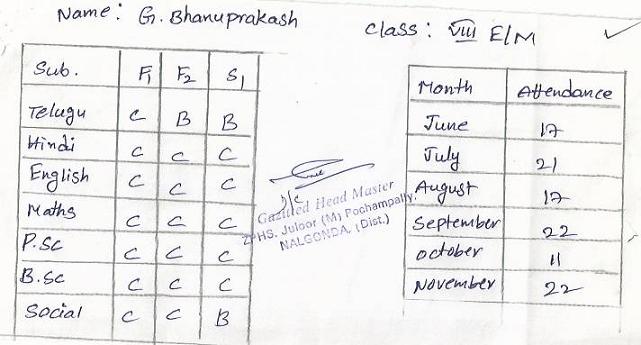 Name: G. Bhanuprakash
class: VIII E/M
Sub. F1 F2 S1
Telugu C B B
Hindi C C C
English C C C
Maths C C C
P.Sc C C C
B.Sc C C C
Social C C B
Gazitted Head Master
ZPHS. Juloor (M) Pochampally.
NALGONDA. (Dist.)
Month Attendance
June 17
July 21
August 17
September 22
october 11
November 22